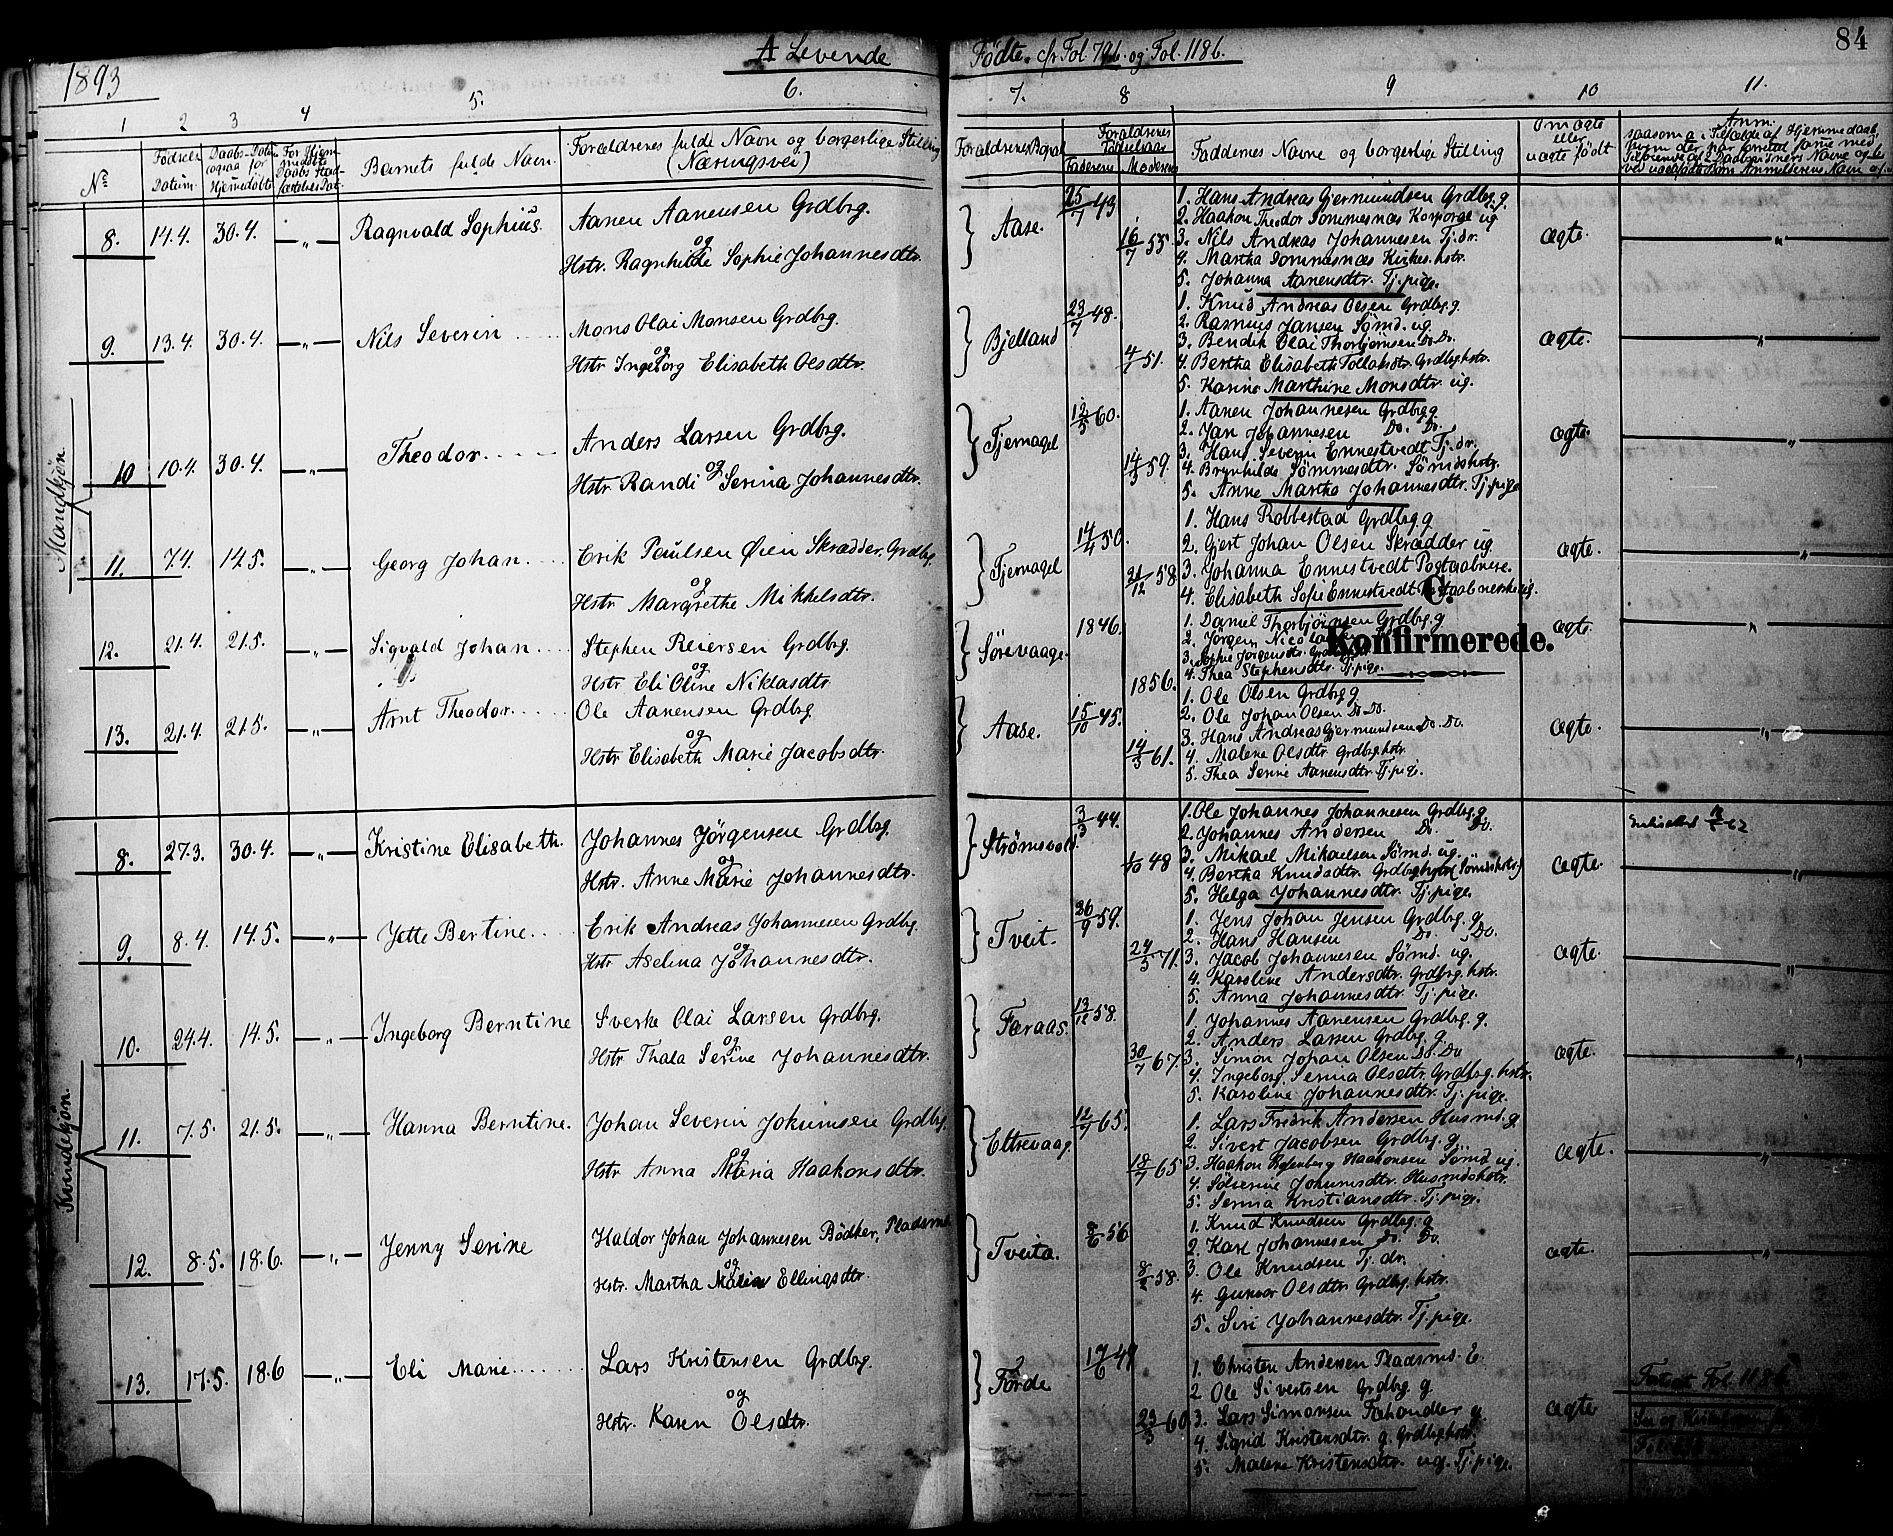 84
1893
A Levende Fødte. cfr Fol. 79b. og Fol. 118b.
1 2 3 4 5. 6. 7. 8 9 10 11.
No
Fødsels Datum.
Daabs-Datum
Hjemmedøbte
Barnets fulde Navn.
Forældrenes fulde Navn og borgerlige Stilling
(Næringsvei)
Forældrenes Bopæl
Forældrenes Fødselsaar
Faderens Moderens
Faddernes Navne og borgerlige Stilling
Om ægte
eller
uægte født
Anm.
Mandkjøn.
8. 14.4. 30.4. —„— Ragnvald Sophius. Aanen Aanensen Grdbrg.
og
Hstr. Ragnhilde Sophie Johannesdtr.
Aase. 25/7 43 16/7 55.
1. Hans Andreas Gjermundsen Grdbrg. g.
2. Haakon Theodor Sommesnæs Korporal ug.
3. Nils Andreas Johannesen Tj.dr.
4. Martha Sommesnæs Kirkes.hstr.
5. Johanna Aanensdtr. Tj.pige.
ægte. „
9. 13.4. 30.4. —„— Nils Severin Mons Olai Monsen Grdbrg.
og
Hstr Ingeborg Elisabeth Olsdtr.
Bjelland 23/7 48. 4/7 51.
1. Knud Andreas Olsen Grdbrg. g
2. Rasmus Jansen Sømd. ug
3. Bendik Olai Thorbjørnsen Do. Do.
4. Bertha Elisabeth Tollaksdtr. Grdbrg.hstr.
5. Karine Marthine Monsdtr. ug.
ægte. „
10 10.4. 30.4. —„— Theodor Anders Larsen Grdbrg.
og
Hstr Randi Serina Johannesdtr.
Tjernagel 12/5 60. 14/3 59.
1. Aanen Johannesen Grdbrg. g
2. Jan Johannesen Do. Do.
3. Hans Severin Ennestvedt Tj. dr.
4. Brynhilde Sømmesdtr. Sømdshstr.
5. Anne Martha Johannesdtr. Tj.pige
ægte. „
11. 7.4. 14.5. —„— Georg Johan. Erik Poulsen Øien Skrædder, Grdbrg.
og
Hstr Margrethe Mikkelsdtr.
Tjernagel 14/4 50. 21/12 58.
1. Hans Robbestad Grdbrg. g
2. Gjert Johan Olsen Skrædder ug.
3. Johanna Ennestvedt Postaabnere.
4. Elisabeth Sofie Ennestvedt
ægte. „
C.
Konfirmerede.
12. 21.4. 21.5. —„— Sigvald Johan Stephen Reiersen Grdbrg.
og
Hstr Eli Oline Niklasdtr
Sørevaage. 1846. 1856.
1. Daniel Thorbjørnsen Grdbrg. g
2. Jørgen
3. Sophie Jørgensdtr.
4. Thea Stephensdtr. Tj.pige.
ægte. „
13. 21.4. 21.5. —„— Arnt Theodor. Ole Aanensen Grdbrg.
og
Hstr Elisabeth Marie Jacobsdtr.
Aase. 15/10 45. 14/3 61.
1. Ole Olsen Grdbrg. g
2. Ole Johan Olsen Do Do.
3. Hans Andreas Gjermundsen Do. Do.
4. Malene Olsdtr. Grdbrg.hstr.
5. Thea Serine Aanensdtr. Tj.pige.
ægte. „
Kvindekjøn.
8. 27.3. 30.4. —„— Kristine Elisabeth. Johannes Jørgensen Grdbrg.
og
Hstr. Anne Marie Johannesdtr.
Strømsvold. 3/3 44. 1/10 48
1. Ole Johannes Johannesen Grdbrg. g
2. Johannes Andersen Do. Do.
3. Mikael Mikaelsen Sømd. ug.
4. Bertha Knudsdtr. Grdbrg.hstr. (Sømdshstr.)
5. Helga Johannesdtr. Tj.pige.
ægte. „
9. 8.4. 14.5. —„— Jette Bertine. Erik Andreas Johannesen Grdbrg.
og
Hstr Aselina Johannesdtr.
Tveit. 26/9 59. 24/5 71.
1. Jens Johan Jensen Grdbrg. g.
2. Hans Hansen Do. Do.
3. Jacob Johannesen Sømd. ug.
4. Karoline Andersdtr. Grdbrg. hstr.
5. Anna Johannesdtr. Tj. pige.
ægte. „
10. 24.4. 14.5. —„— Ingeborg Berntine Sverke Olai Larsen Grdbrg.
og
Hstr Thala Serine Johannesdtr.
Færaas. 13/12 58. 30/7 67.
1. Johannes Aanensen Grdbrg. g.
2. Anders Larsen Grdbrg. g.
3. Simon Johan Olsen Do. Do
4. Ingeborg Serina Olsdtr. Grdbrg. hstr.
5. Karoline Johannesdtr. Tj. pige.
ægte. „
11. 7.5. 21.5. —„— Hanna Berntine. Johan Severin Jokumsen Grdbrg.
og
Hstr Anna Maria Haakonsdtr.
Eltrevaag. 12/7 65. 18/7 65
1. Lars Fredrik Andersen Husmd. g.
2. Sivert Jacobsen Grdbrg. g
3. Haakon Haakonsen Sømd. ug.
4. Sølverine Johannesdtr. Husmdshstr.
5. Serina Kristiansdtr. Tj.pige.
ægte. „
12. 8.5. 18.6. —„— Jenny Serine Haldor Johan Johannesen Bødker, Pladsmd
og
Hstr. Martha Malene Ellingsdtr.
Tveita. 56 58.
1. Knud Knudsen Grdbrg. g
2. Karl Johannesen Do. Do.
3. Ole Knudsen Tj. dr.
4. Gunvor Olsdtr Grdbrg. hstr.
5. Siri Johannesdtr. Tj. pige.
ægte. „
13. 17.5. 18.6 —„— Eli Marie Lars Kristensen Grdbrg.
og
Hstr. Karen Olsdtr.
Førde 17/6 49 23/3 60
1. Christen Andersen Pladsmd. E.
2 Ole Sivertsen Grdbrg. g
3. Lars Simonsen Fæhandler g
4. Sigrid Kristensdtr. g. Grdbrg.hstr.
5. Malene Kristensdtr. ug. Tj. pige.
ægte
Fortsat Fol. 118b